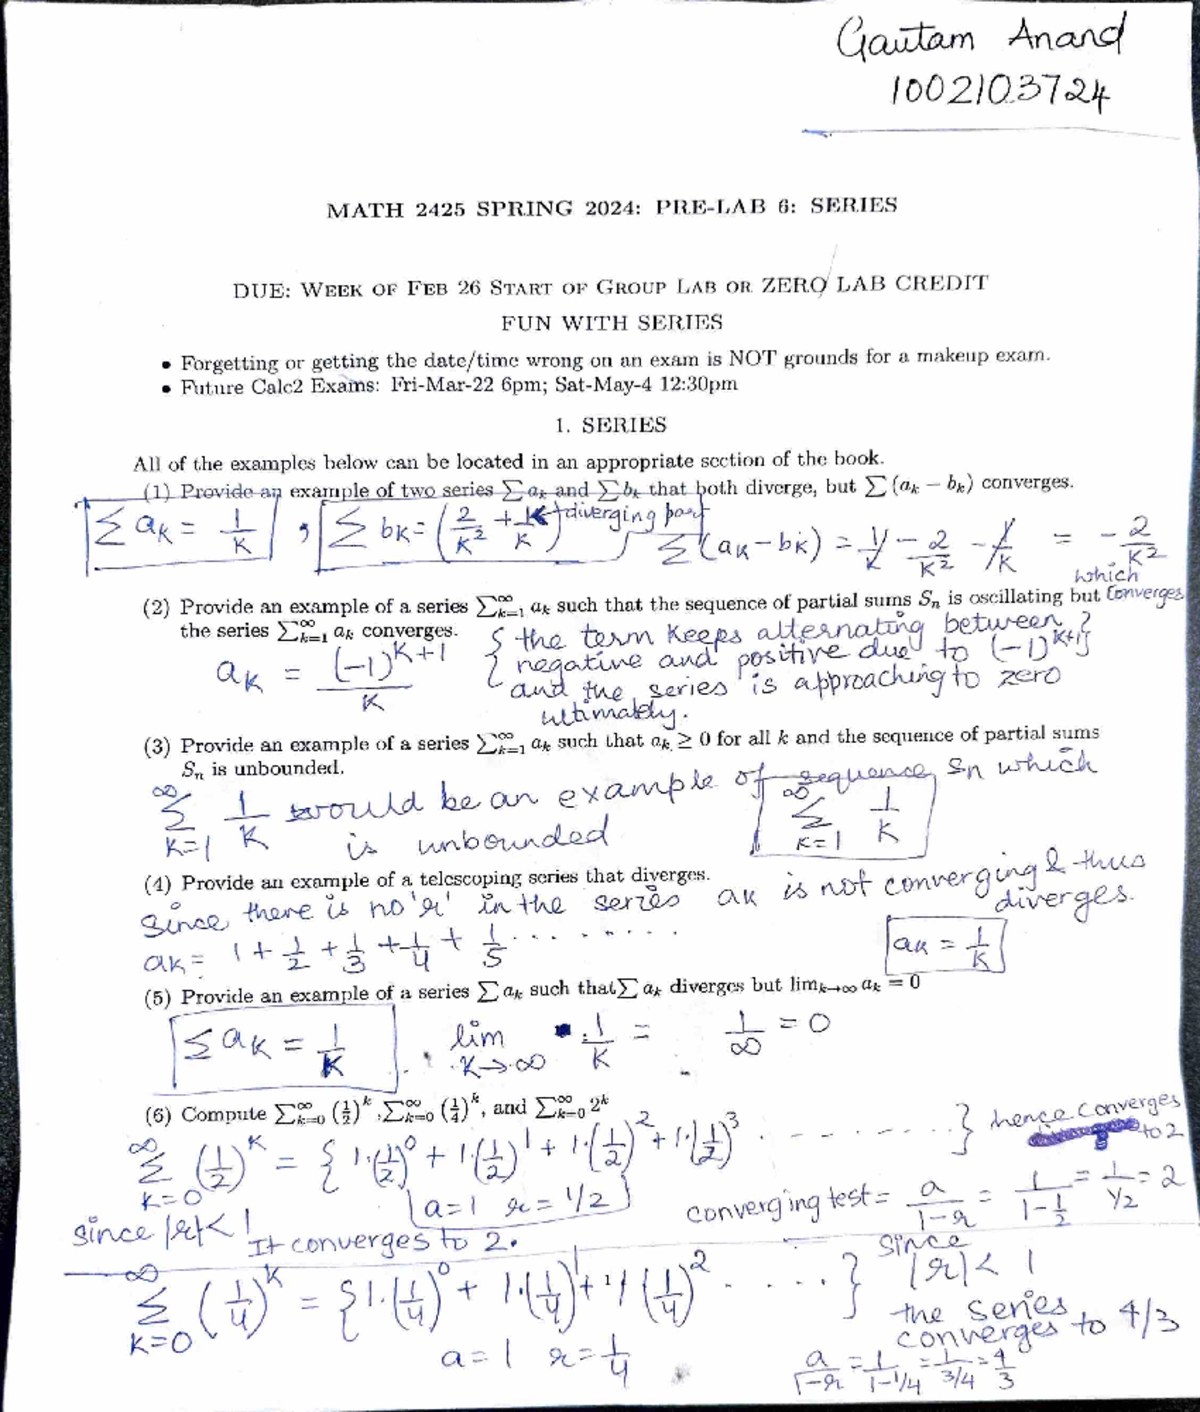 Gautam Anand
1002103724
MATH 2425 SPRING 2024: PRE-LAB 6: SERIES
DUE: WEEK OF FEB 26 START OF GROUP LAB OR ZERO LAB CREDIT
FUN WITH SERIES
• Forgetting or getting the date/time wrong on an exam is NOT grounds for a makeup exam.
• Future Calc2 Exams: Fri-Mar-22 6pm; Sat-May-4 12:30pm
1. SERIES
All of the examples below can be located in an appropriate section of the book.
(1) Provide an example of two series ∑ aₖ and ∑ bₖ that both diverge, but ∑ (aₖ − bₖ) converges.
∑ aK = 1/K , ∑ bK = (2/K² + 1/K) → diverging part
∑(aK − bK) = 1/K − 2/K² − 1/K = −2/K²
which converges
(2) Provide an example of a series ∑_{k=1}^∞ aₖ such that the sequence of partial sums Sₙ is oscillating but
the series ∑_{k=1}^∞ aₖ converges.
aK = (−1)^{K+1}/K
{ the term keeps alternating between }
{ negative and positive due to (−1)^{K+1} }
and the series is approaching to zero
ultimately.
(3) Provide an example of a series ∑_{k=1}^∞ aₖ such that aₖ ≥ 0 for all k and the sequence of partial sums
Sₙ is unbounded.
∑_{K=1}^∞ 1/K would be an example of sequence Sn which
is unbounded
∑_{K=1}^∞ 1/K
(4) Provide an example of a telescoping series that diverges.
Since there is no 'r' in the series aK is not converging & thus
diverges.
aK = 1 + 1/2 + 1/3 + 1/4 + 1/5 ........
aK = 1/K
(5) Provide an example of a series ∑ aₖ such that ∑ aₖ diverges but lim_{k→∞} aₖ = 0
∑ aK = 1/K
lim K→∞ 1/K = 1/∞ = 0
(6) Compute ∑_{k=0}^∞ (1/2)^k, ∑_{k=0}^∞ (1/4)^k, and ∑_{k=0}^∞ 2^k
∑_{K=0}^∞ (1/2)^K = { 1·(1/2)^0 + 1·(1/2)^1 + 1·(1/2)^2 + 1·(1/2)^3 . - - - - - ..... } hence converges
to 2
a=1 r = 1/2
converging test = a/(1−r) = 1/(1−1/2) = 1/(1/2) = 2
since |r| < 1
It converges to 2.
∑_{K=0}^∞ (1/4)^K = { 1·(1/4)^0 + 1·(1/4)^1 + 1·(1/4)^2 . . . . . . }
a = 1 r = 1/4
since
|r| < 1
the series
converges to 4/3
a/(1−r) = 1/(1−1/4) = 1/(3/4) = 4/3